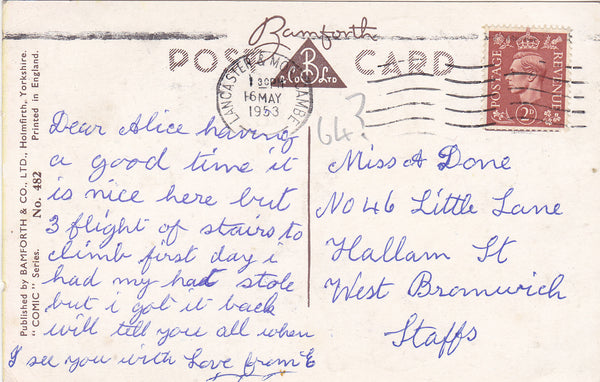 Bamforth
POST CARD
B
& Co LTD
LANCASTER & MORECAMBE
1 30PM
16 MAY
1953
POSTAGE
REVENUE
2D
64?
Published by BAMFORTH & CO., LTD., Holmfirth, Yorkshire.
"COMIC" Series. No. 482 Printed in England.
Dear Alice having
a good time it
is nice here but
3 flight of stairs to
climb first day i
had my hat stole
but i got it back
will tell you all when
I see you with Love from E
Miss A Done
No 46 Little Lane
Hallam St
West Bromwich
Staffs